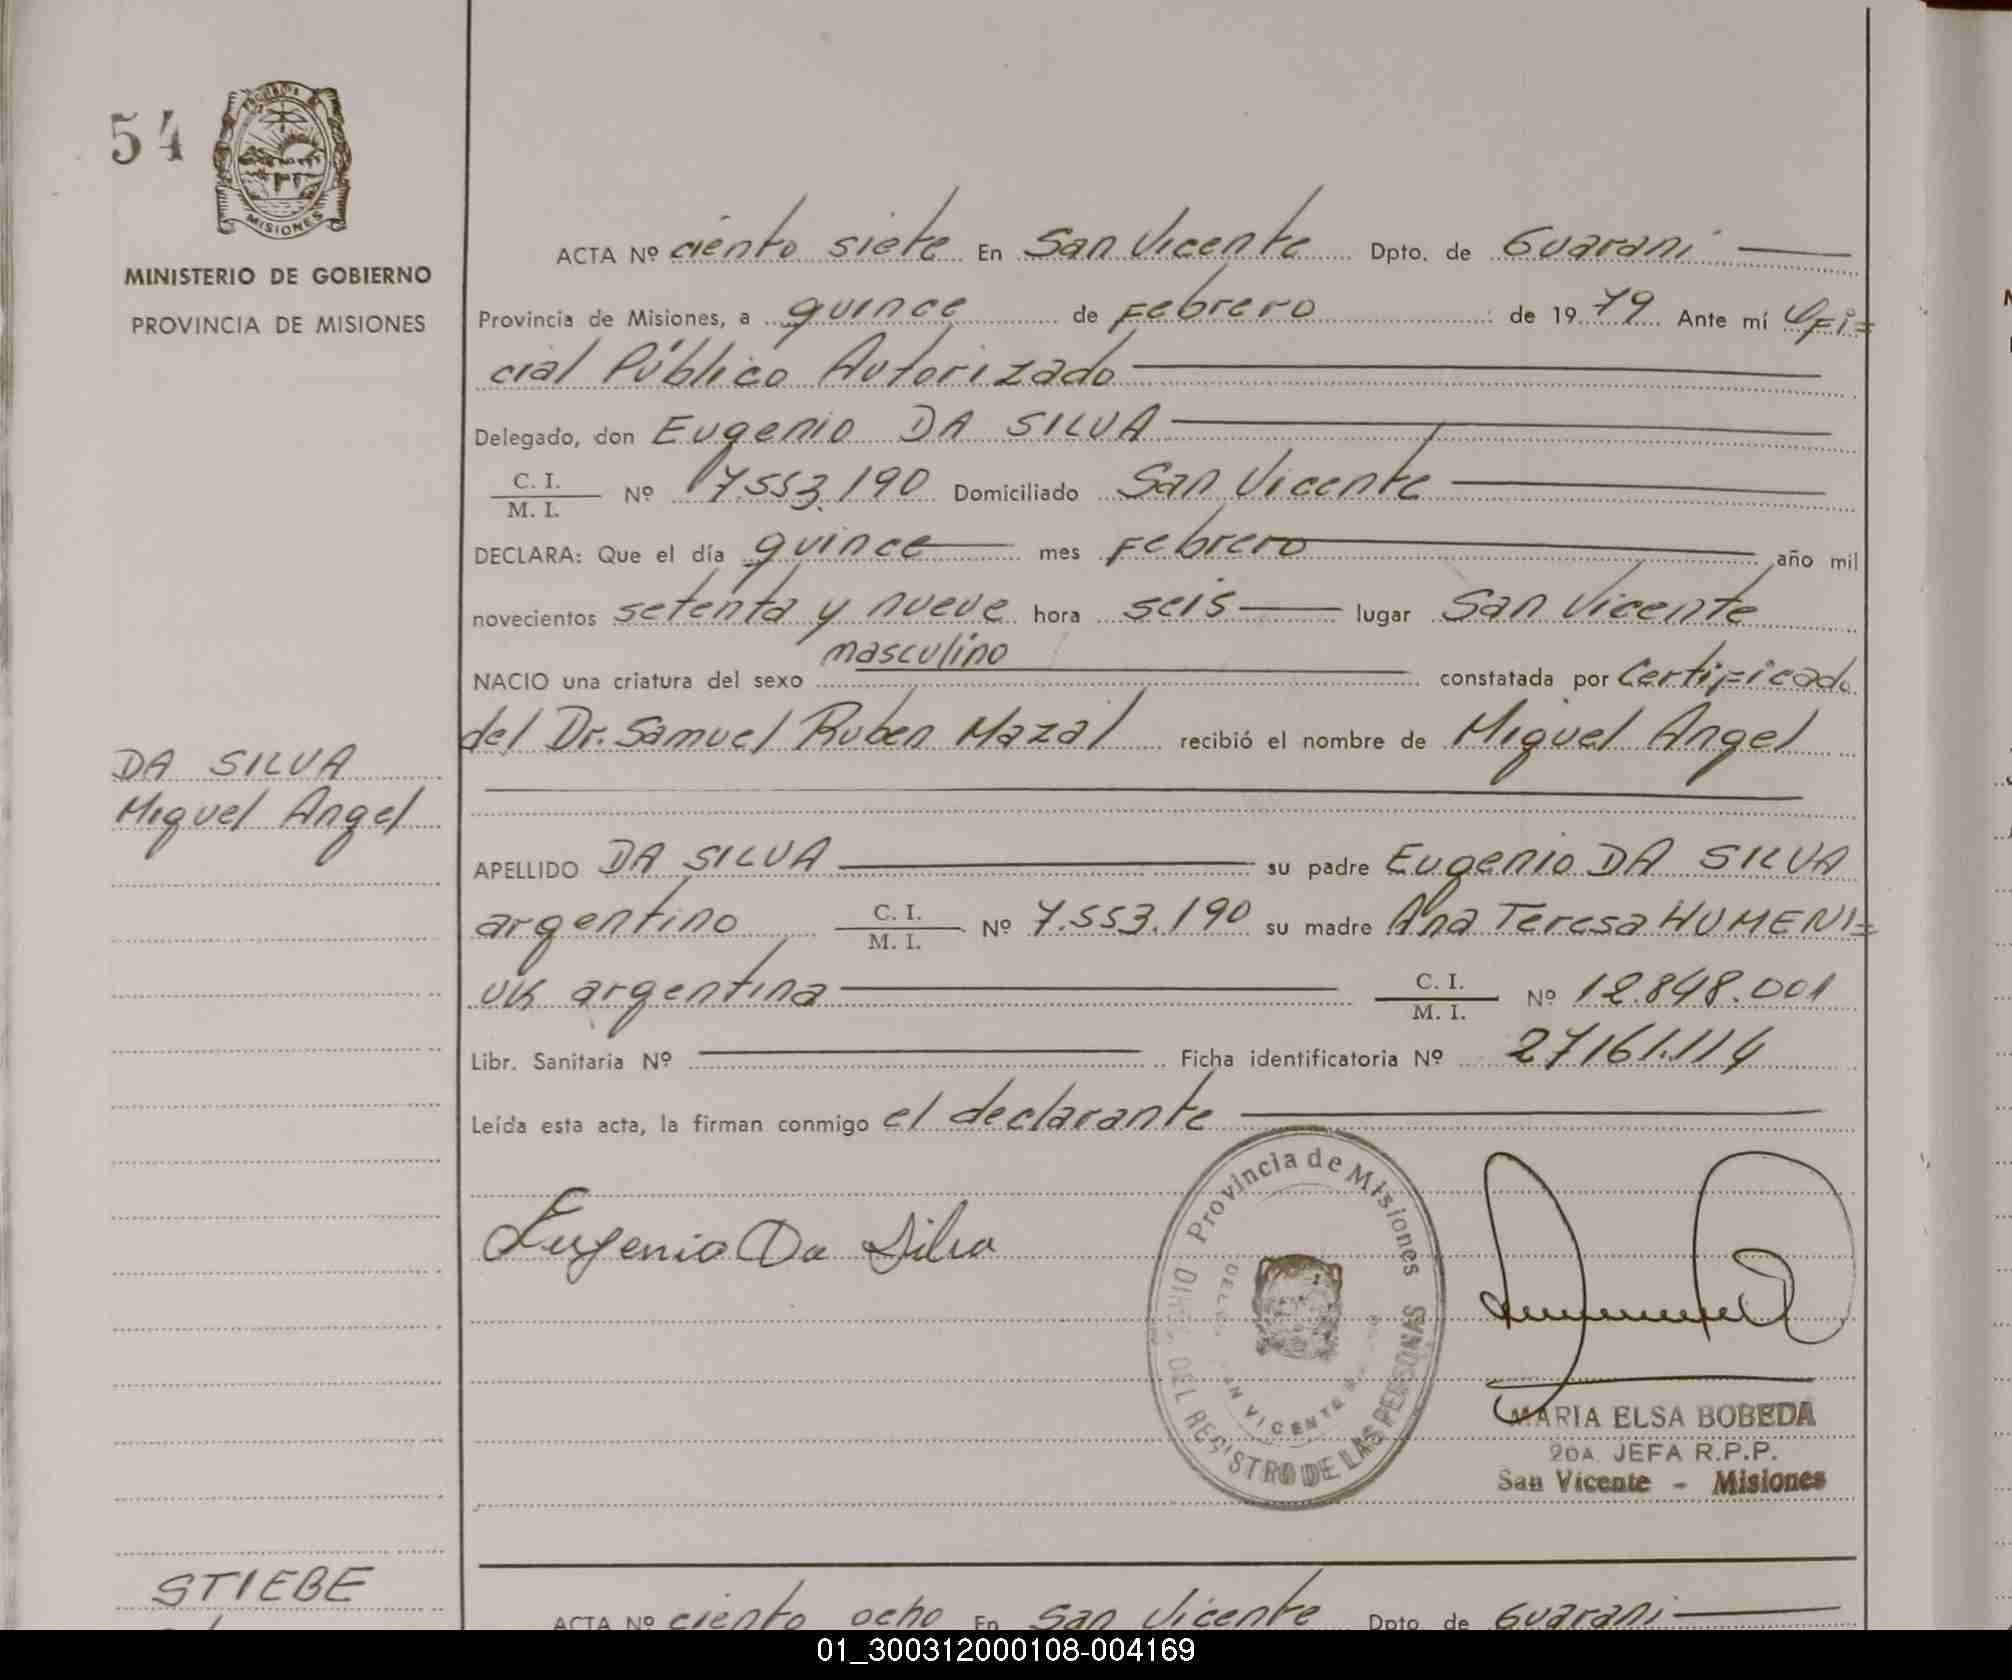 54
MISIONES
MINISTERIO DE GOBIERNO
PROVINCIA DE MISIONES
DA SILVA
Miguel Angel
STIEBE
ACTA Nº ciento siete En San Vicente Dpto. de Guaraní
Provincia de Misiones, a quince de Febrero de 1979 Ante mí Ofi=
cial Público Autorizado
Delegado, don Eugenio DA SILVA
C. I.
M. I. Nº 7.553.190 Domiciliado San Vicente
DECLARA: Que el día quince mes Febrero año mil
novecientos setenta y nueve hora seis lugar San Vicente
NACIO una criatura del sexo masculino constatada por Certificado
del Dr. Samuel Ruben Mazal recibió el nombre de Miguel Angel
APELLIDO DA SILVA su padre Eugenio DA SILVA
argentino C. I.
M. I. Nº 7.553.190 su madre Ana Teresa HUMENI=
UK argentina C. I.
M. I. Nº 12.848.001
Libr. Sanitaria Nº Ficha identificatoria Nº 27161.114
Leída esta acta, la firman conmigo el declarante
Eugenio Da Silva
Provincia de Misiones
DEL REGISTRO DE LAS PERSONAS
VICENTE
MARIA ELSA BOBEDA
2DA. JEFA R.P.P.
San Vicente - Misiones
ACTA Nº ciento ocho En San Vicente Dpto de Guaraní
01_300312000108-004169